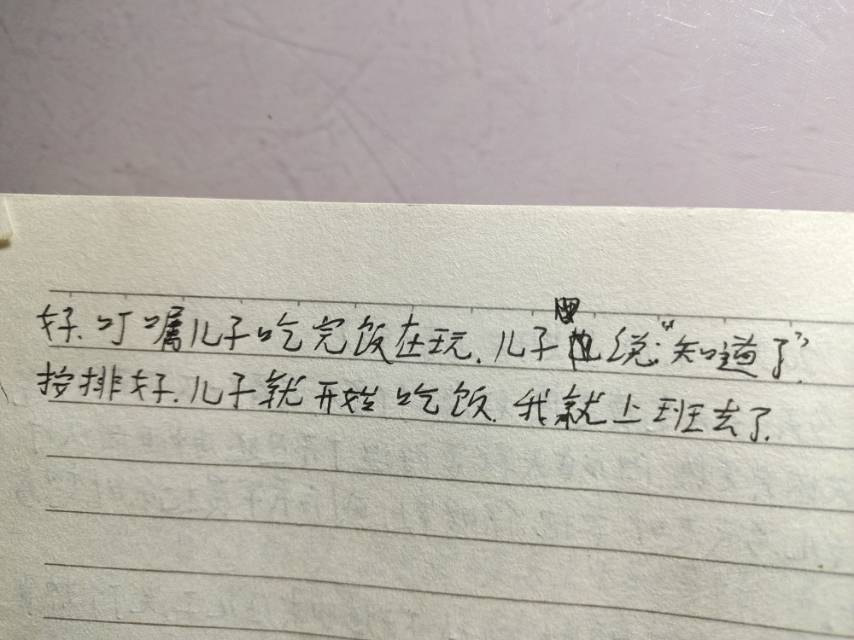 好.叮嘱儿子吃完饭在玩.儿子也说:“知道了”.
按排好.儿子就开始吃饭.我就上班去了.